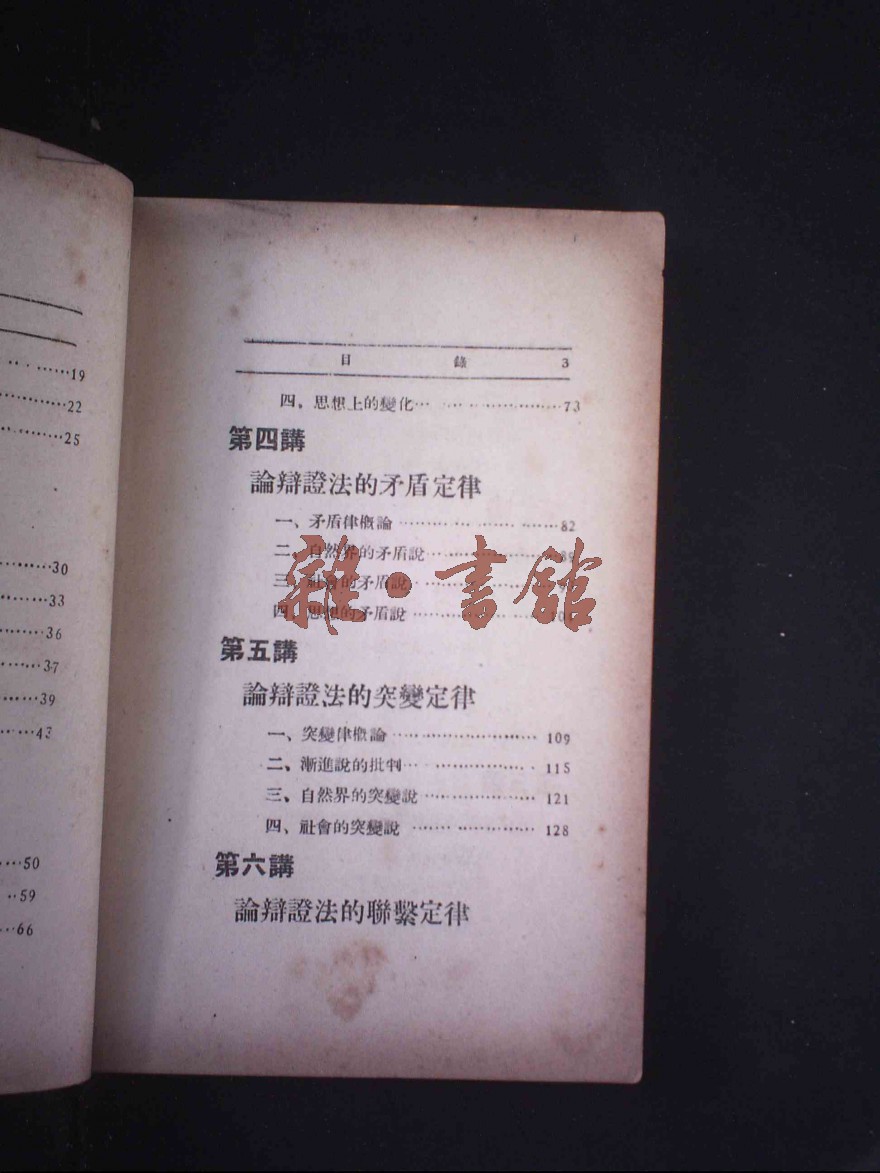 19
22
25
30
33
36
37
39
43
50
59
66
目 錄 3
四、思想上的變化………………73
第四講
論辯證法的矛盾定律
一、矛盾律概論………………82
二、自然界的矛盾說………………89
三、社會的矛盾說………………
四、思想的矛盾說………………
第五講
論辯證法的突變定律
一、突變律概論………………109
二、漸進說的批判………………115
三、自然界的突變說………………121
四、社會的突變說………………128
第六講
論辯證法的聯繫定律
雜·書館